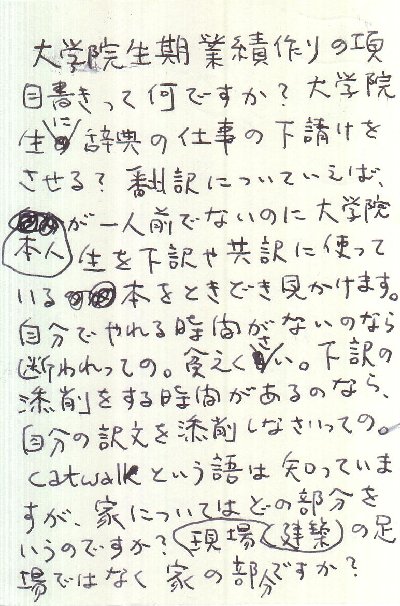 大学院生期業績作りの項
目書きって何ですか？大学院
生に辞典の仕事の下請けを
させる？翻訳についていえば、
本人が一人前でないのに大学院
生を下訳や共訳に使って
いる本をときどき見かけます。
自分でやれる時間がないのなら
断われっての。食えくさい。下訳の
添削をする時間があるのなら、
自分の訳文を添削しなさいっての。
catwalkという語は知っていま
すが、家についてはどの部分を
いうのですか？現場（建築）の足
場ではなく家の部分ですか？